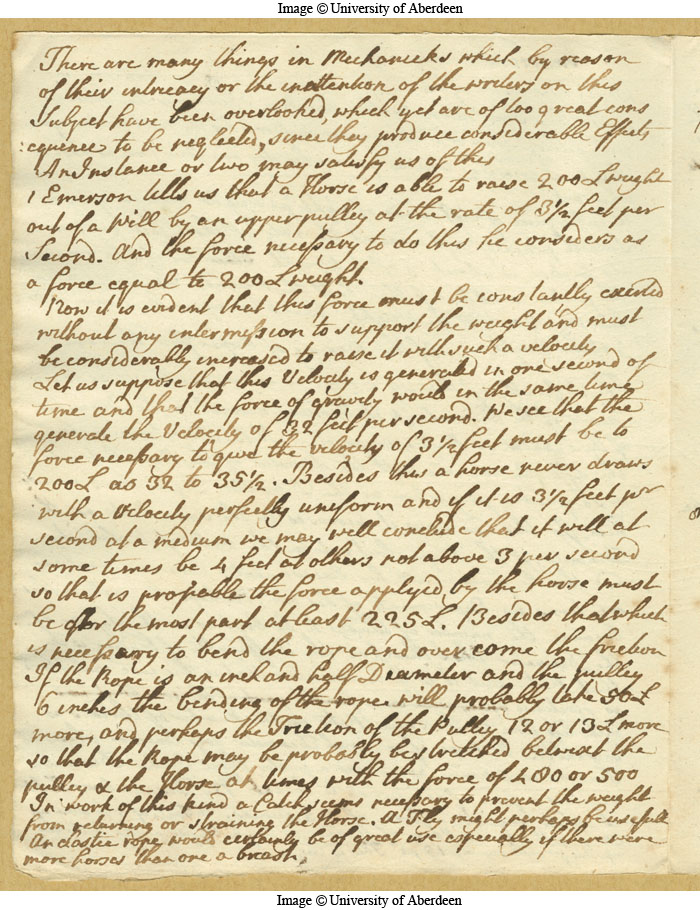 Image © University of Aberdeen
There are many things in Mechanicks which by reason
of their intricacy or the inattention of the writers on this
Subject have been overlooked, which yet are of too great cons
equence to be neglected, since they produce considerable Effects
An Instance or two may satisfy us of this
1 Emerson tells us that a Horse is able to raise 200 L weight
out of a Well by an upper pulley at the rate of 3 1/2 feet per
Second. And the force necessary to do this he considers as
a force equal to 200 L weight.
Now it is evident that this force must be constantly exerted
without any intermission to support the weight and must
be considerably increased to raise it with such a velocity
Let us suppose that this Velocity is generated in one second of
time and that the force of gravity would in the same time
generate the Velocity of 32 feet per second. We see that the
force necessary to give the velocity of 3 1/2 feet must be to
200 L as 32 to 35 1/2. Besides this a horse never draws
with a velocity perfectly uniform and if it is 3 1/2 feet per
second at a medium we may well conclude that it will at
some times be 4 feet at others not above 3 per second
so that is probable the force applyed by the horse must
be for the most part at least 225 L. Besides that which
is necessary to bend the rope and over come the friction
If the Rope is an inch and half Diameter and the pulley
6 inches the bending of the rope will probably take 50 L
more, and perhaps the Friction of the Pulley 12 or 13 L more
so that the Rope may be probably be stretched betwixt the
pulley & the Horse at times with the force of 480 or 500
In work of this kind a Catch seems necessary to prevent the weight
from returning or straining the Horse. A Fly might perhaps be usefull
An elastic rope would certainly be of great use especially if there were
more horses than one a breast.
Image © University of Aberdeen